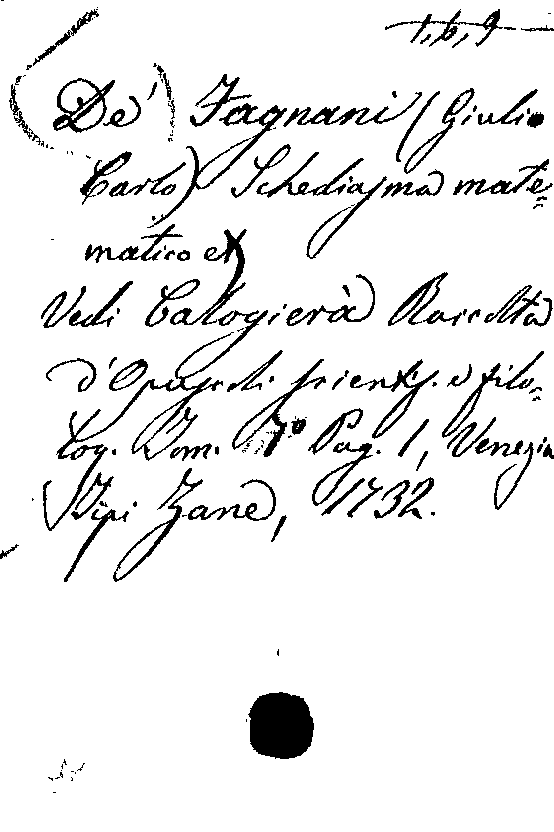 1, 6, 9
De' Fagnani (Giulio
Carlo) Schediasma mate=
matico ec
Vedi Calogierà Raccolta
d'Opuscoli scientif. e filo=
log. Tom. 7º Pag. 1, Venezia
Tipi Zane, 1732.